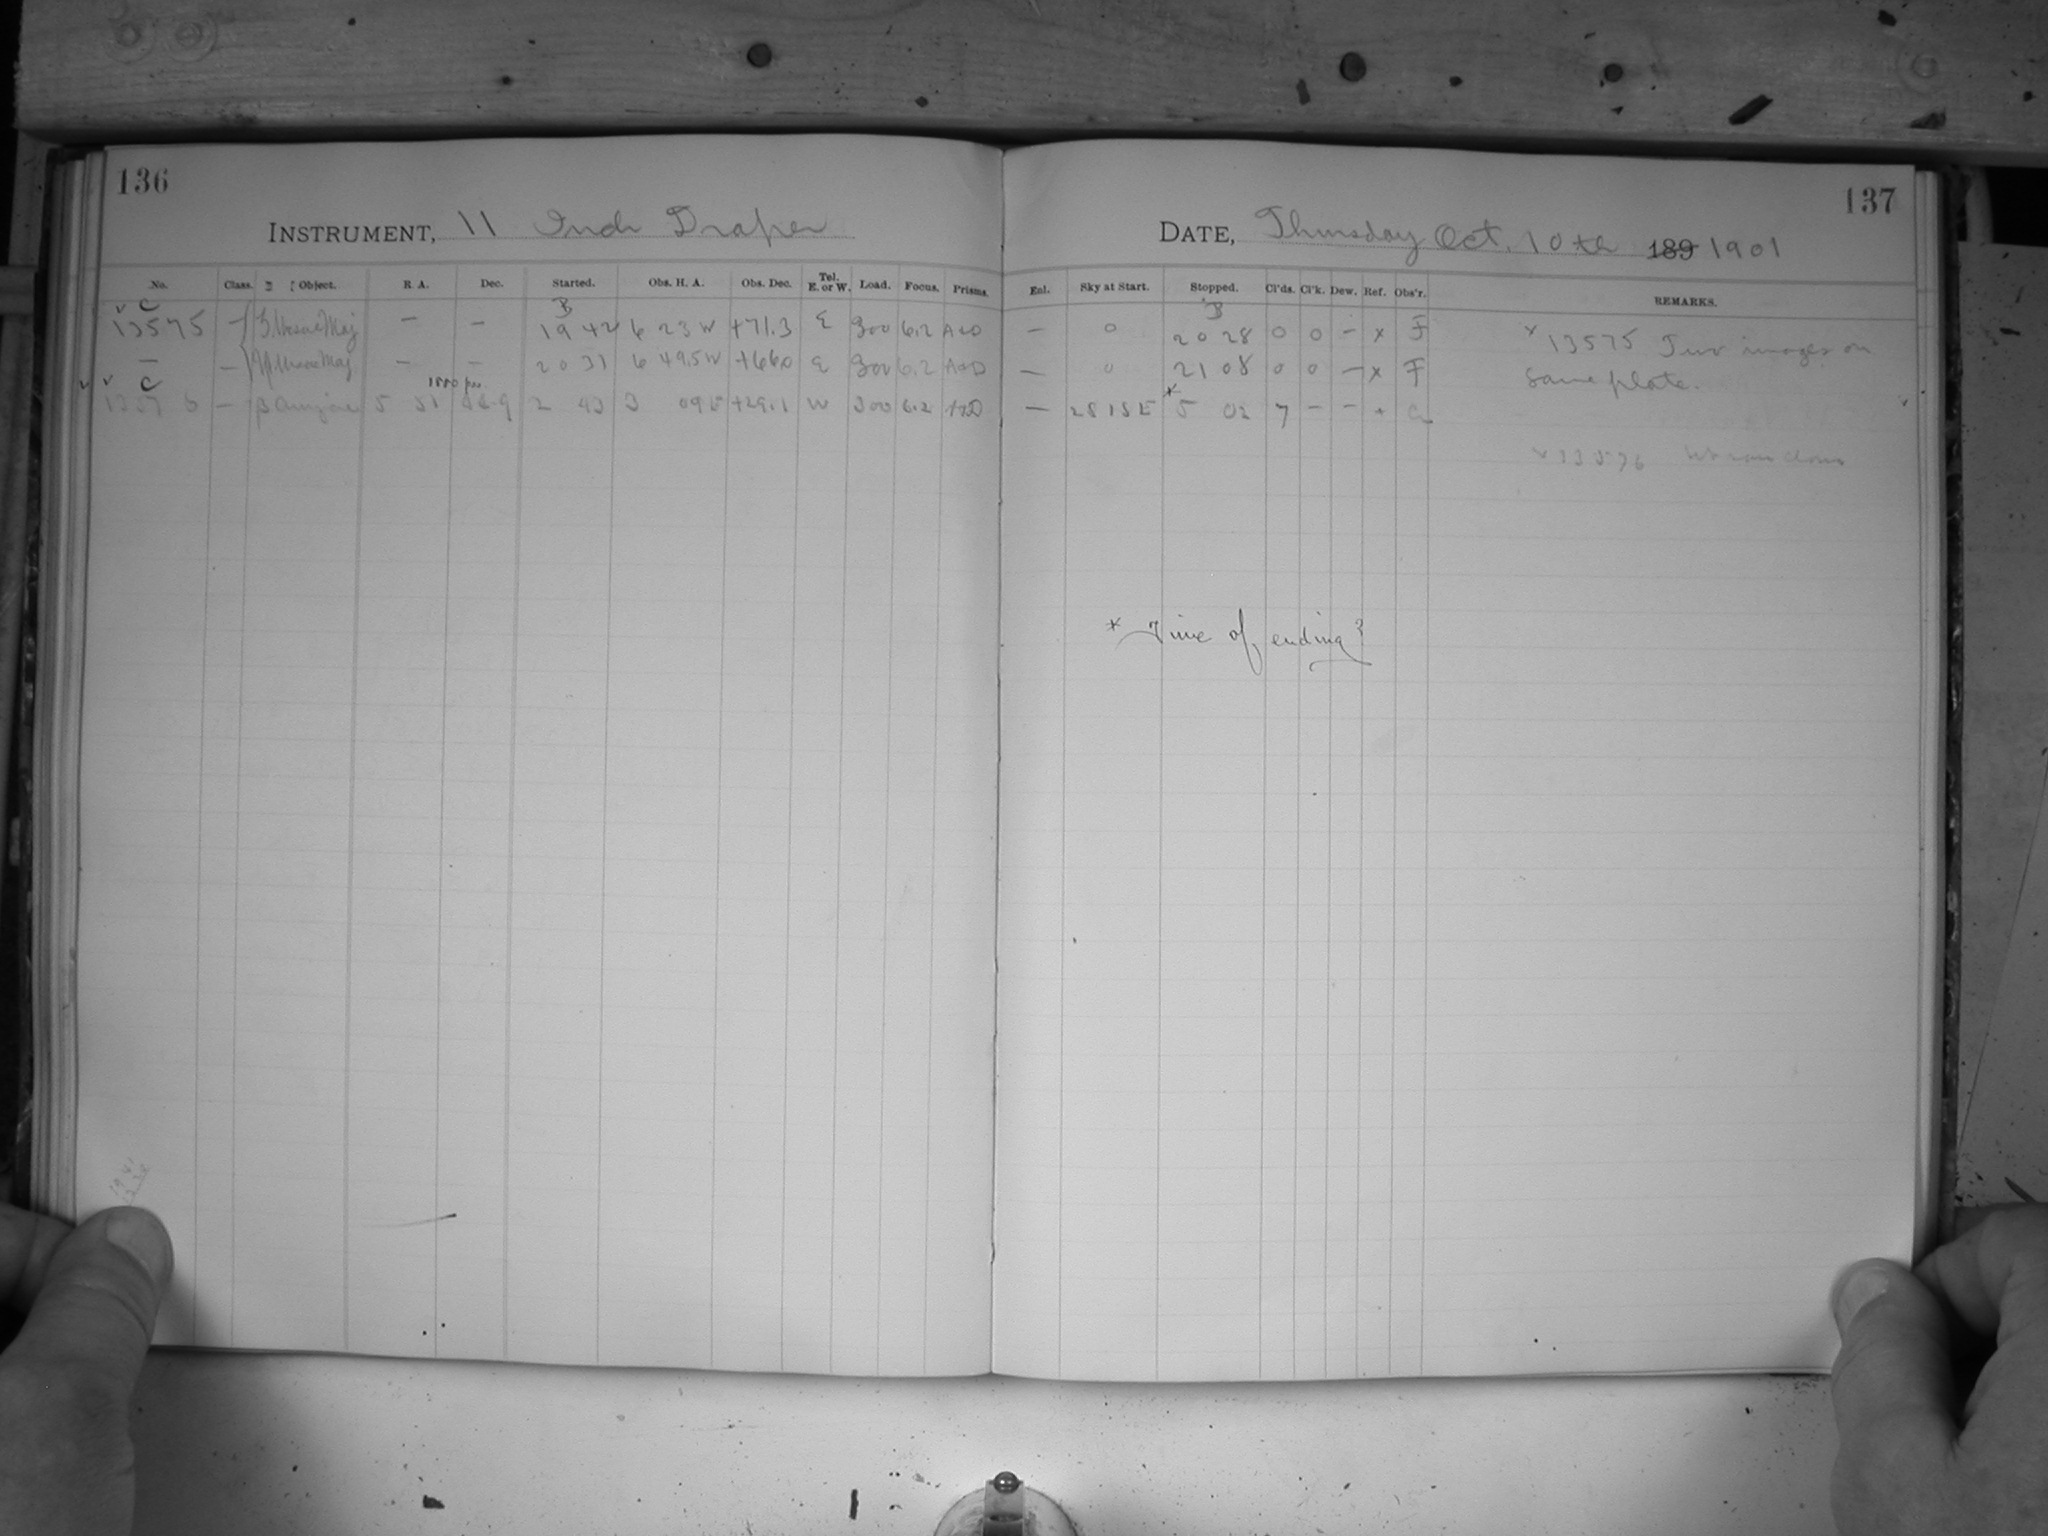 136
137
INSTRUMENT, 11 Inch Draper
DATE, Thursday Oct. 10th 189 1901
No. Class. Object. R. A. Dec. Started. Obs. H. A. Obs. Dec. Tel. E. or W. Load. Focus. Prisms.
Enl. Sky at Start. Stopped. Cl'ds. Cl'k. Dew. Ref. Obs'r. REMARKS.
v C B B
13575 — Ursae Maj — — 19 42 6 23 W +71.3 E 300 6.2 A+D — 0 20 28 0 0 — x F x 13575 Two images on
— — Ursae Maj — — 20 31 6 49.5 W +66.0 E 300 6.2 A+D — 0 21 08 0 0 — x F same plate.
v v C 1800
13576 — β Aurigae 5 51 2 43 3 09 E +29.1 W 300 6.2 A+D — 2815 E * 5 02 7 — — x v
x 13576
* Time of ending?